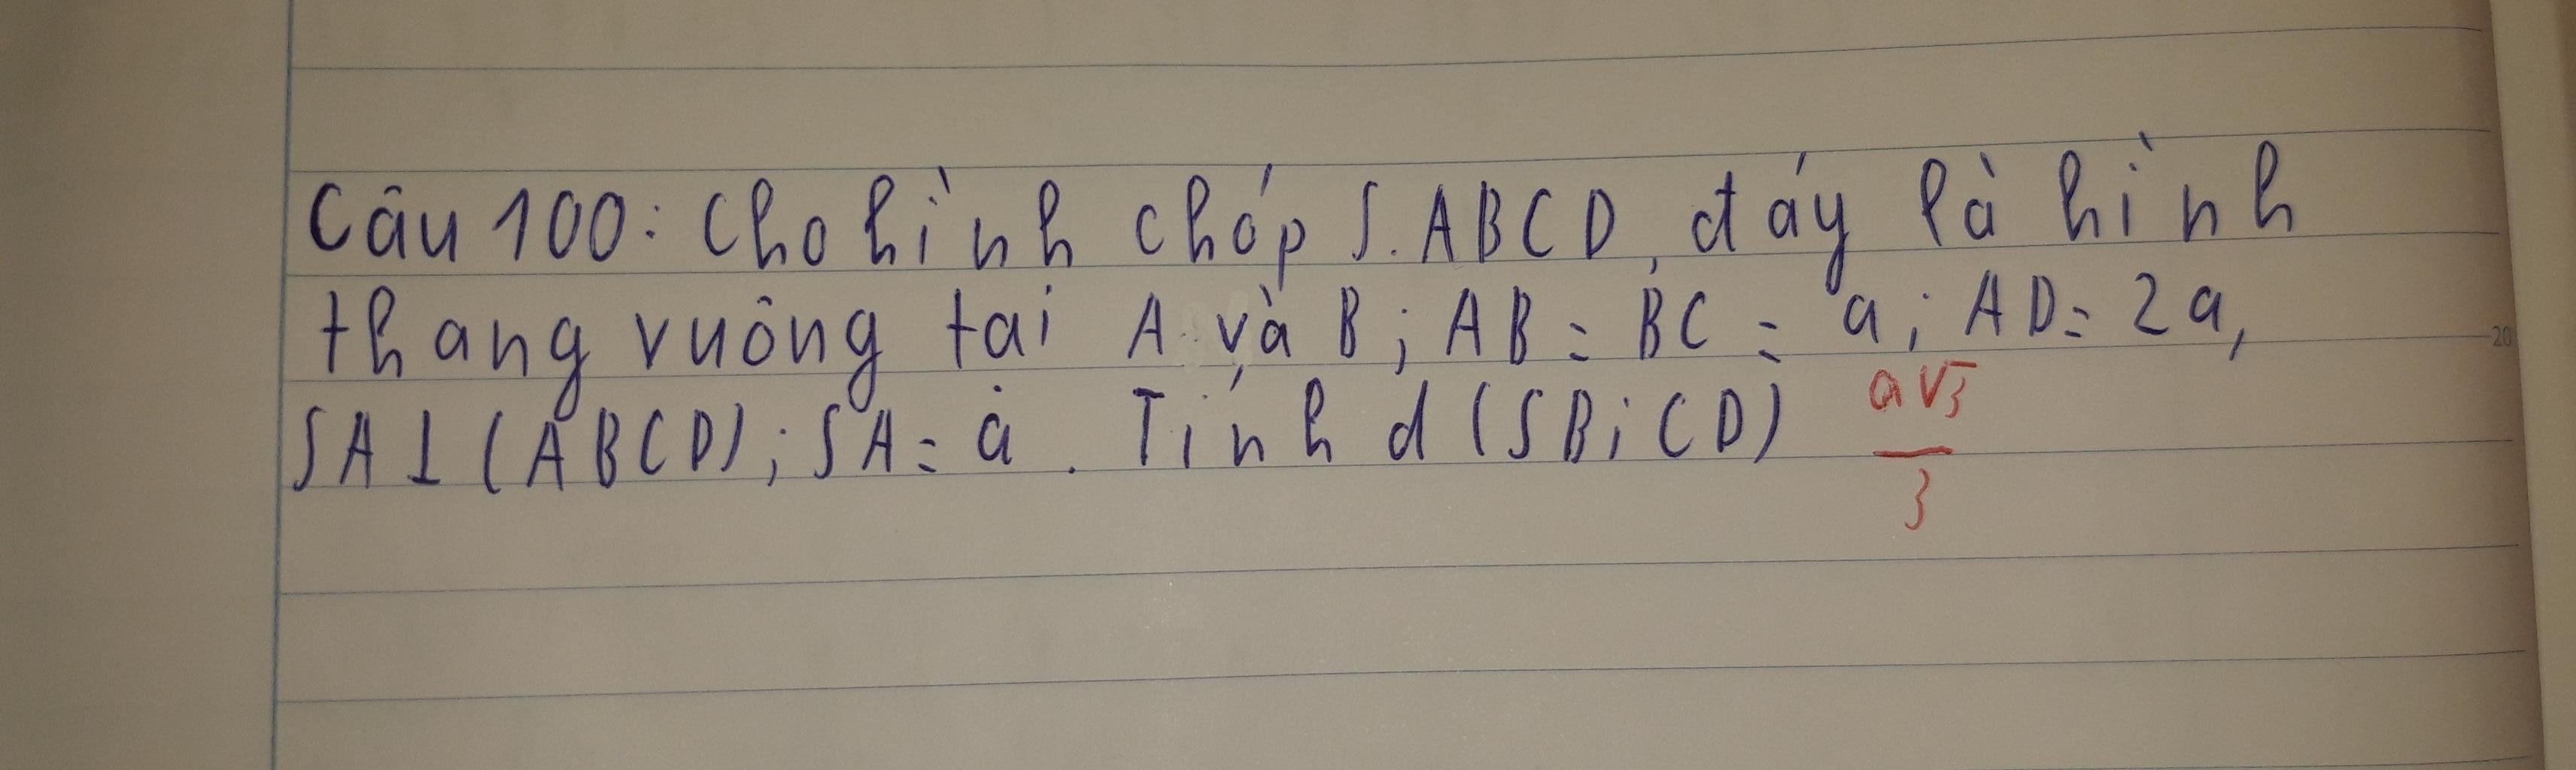 Câu 100: Cho hình chóp S.ABCD, đáy là hình
thang vuông tại A và B; AB = BC = a; AD = 2a,
SA ⊥ (ABCD); SA = a. Tính d(SB; CD) a√3/3
20